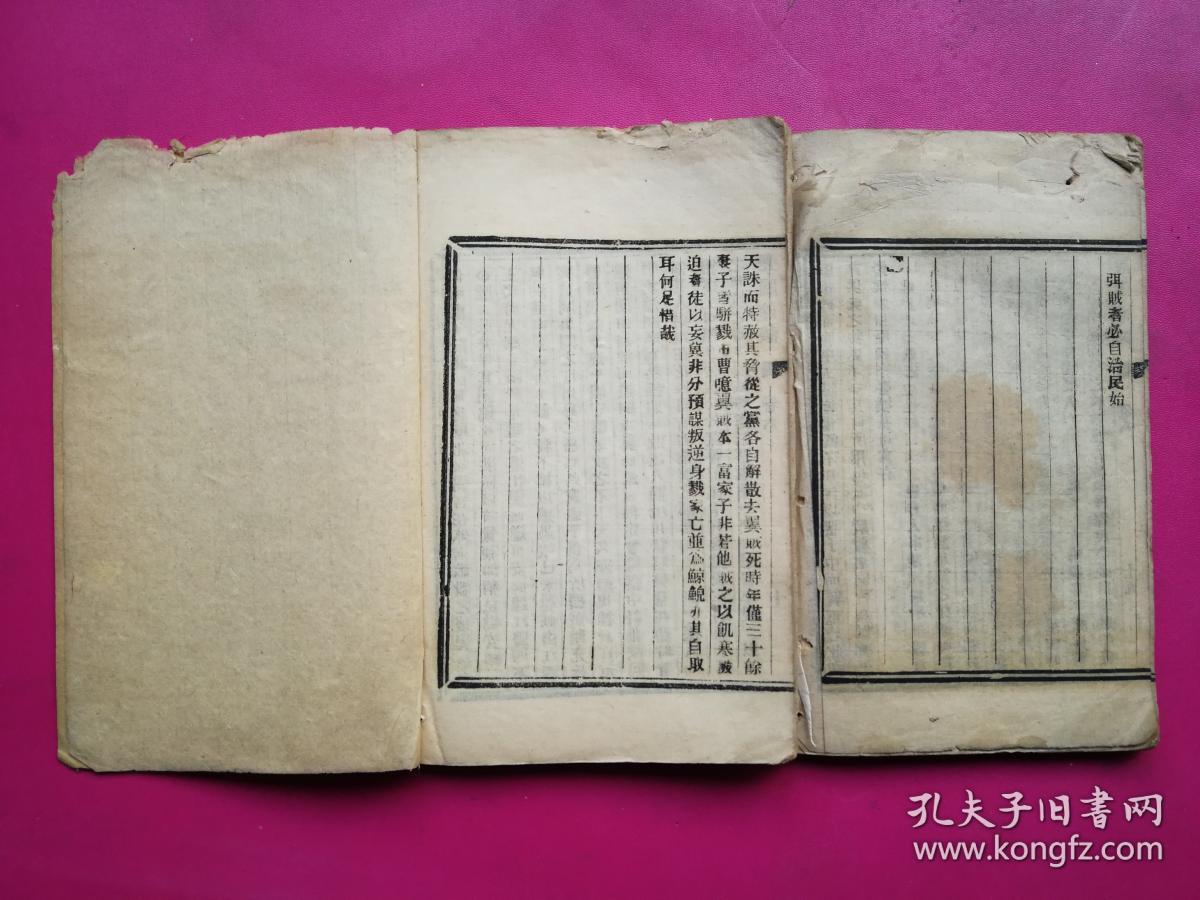 弭賊者必自治民始
天誅而特赦其脅從之黨各自解散去冀賊死時年僅三十餘
妻子皆駢戮於曹噫冀賊本一富家子非若他賊之以飢寒
迫者徒以妄冀非分預謀叛逆身戮家亡並為鯨鯢亦其自取
耳何足惜哉
孔夫子旧书网
www.kongfz.com